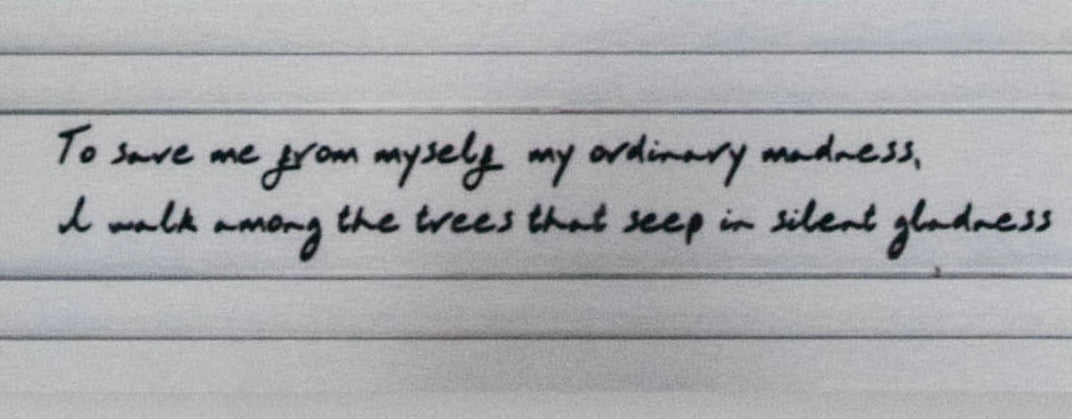 To save me from myself my ordinary madness,
I walk among the trees that seep in silent gladness